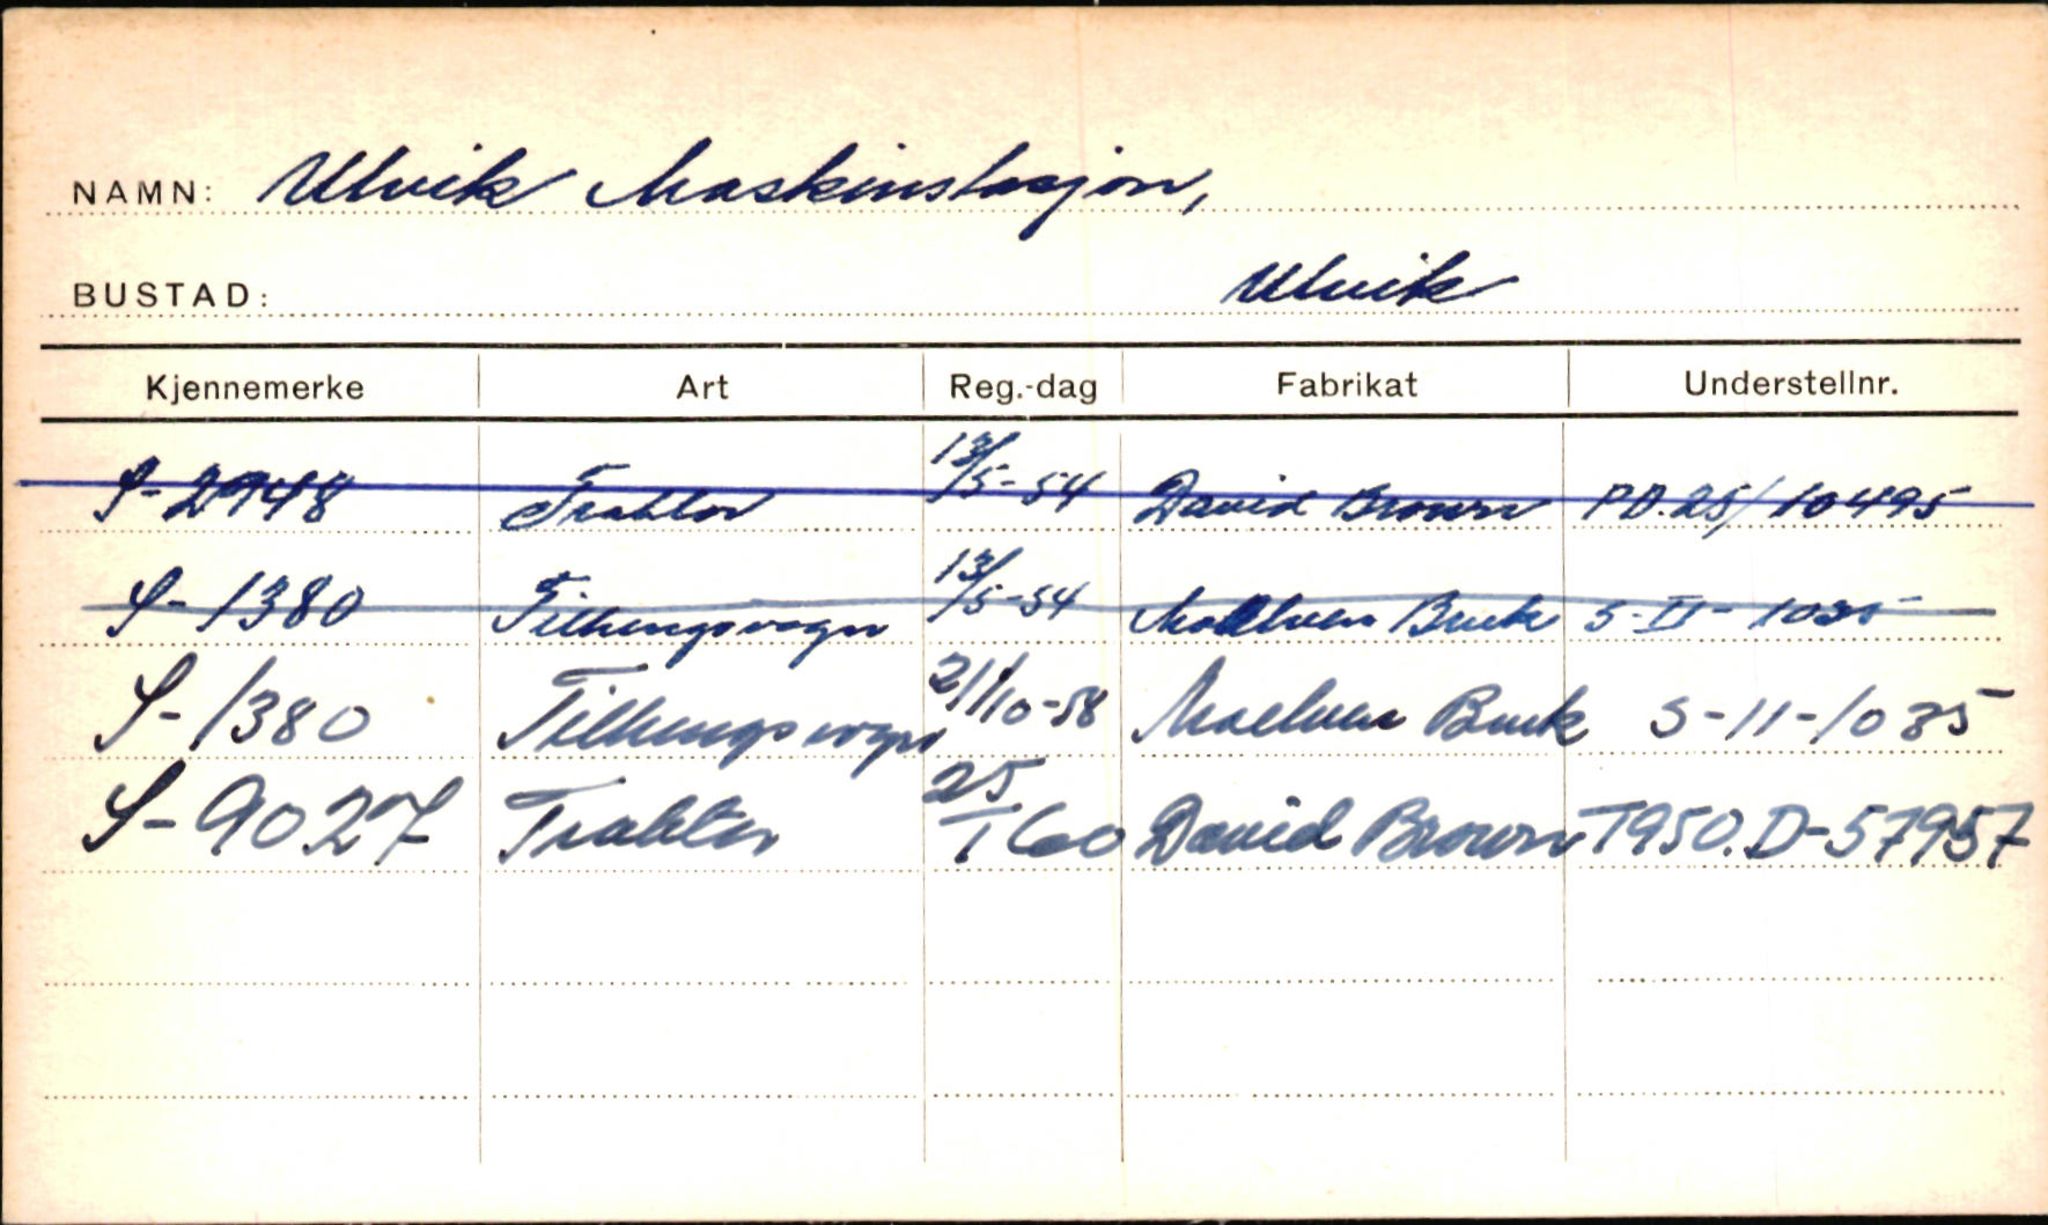 NAMN: Ulvik Maskinstasjon,
BUSTAD: Ulvik
Kjennemerke Art Reg.-dag Fabrikat Understellnr.
S-2948 Traktor 13/5-54 David Brown PD.25/10495
S-1380 Tilhengsvogn 13/5-54 Moelven Bruk S-II-1035
S-1380 Tilhengsvogn 21/10-58 Moelven Bruk S-11-1035
S-9027 Traktor 25/1 60 David Brown T950.D-57957